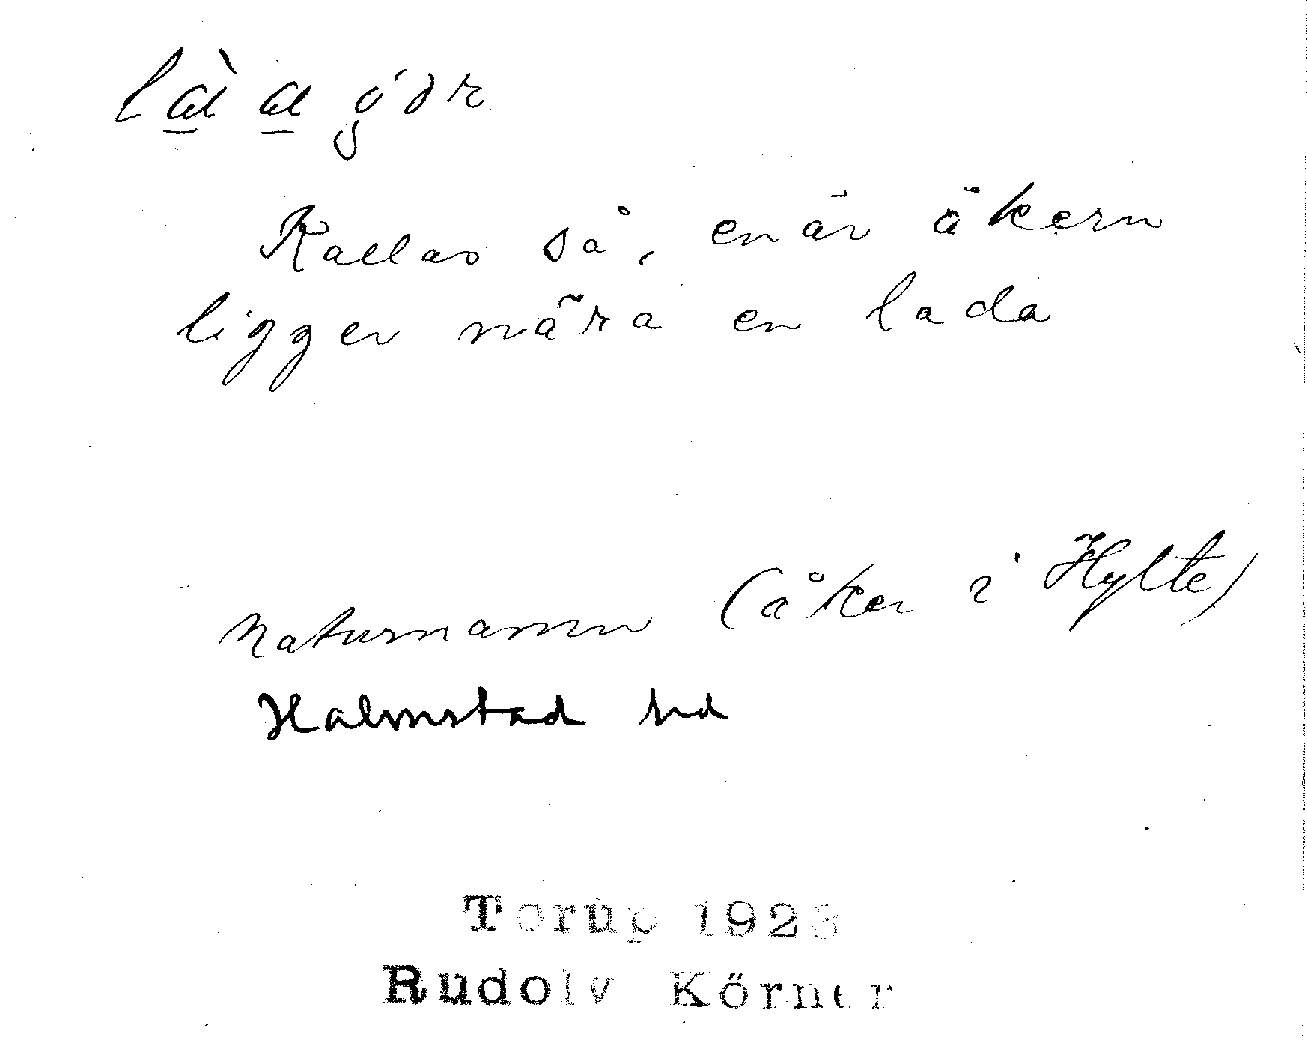 Kallas så, enär åkern
ligger nära en lada
Naturnamn (åker i Hylte)
Halmstad hd
Torup 1923
Rudolv Körner